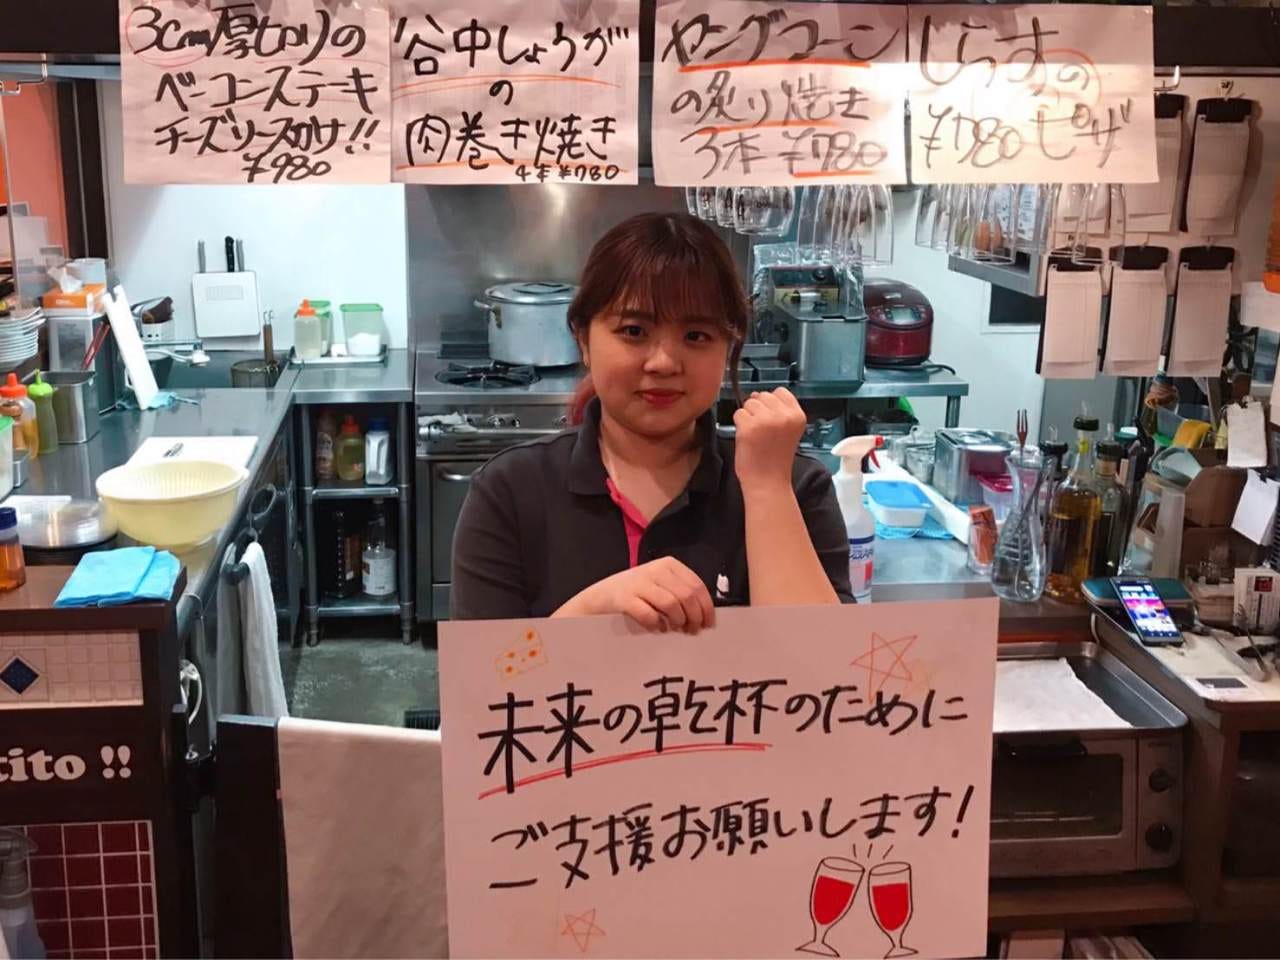 3cm厚切りの
ベーコンステーキ
チーズソースがけ!!
¥980
谷中しょうが
の
肉巻き焼き
4本¥780
ヤングコーン
の炙り焼き
3本¥780
しらすの
ピザ
¥780
tito !!
未来の乾杯のために
ご支援お願いします!